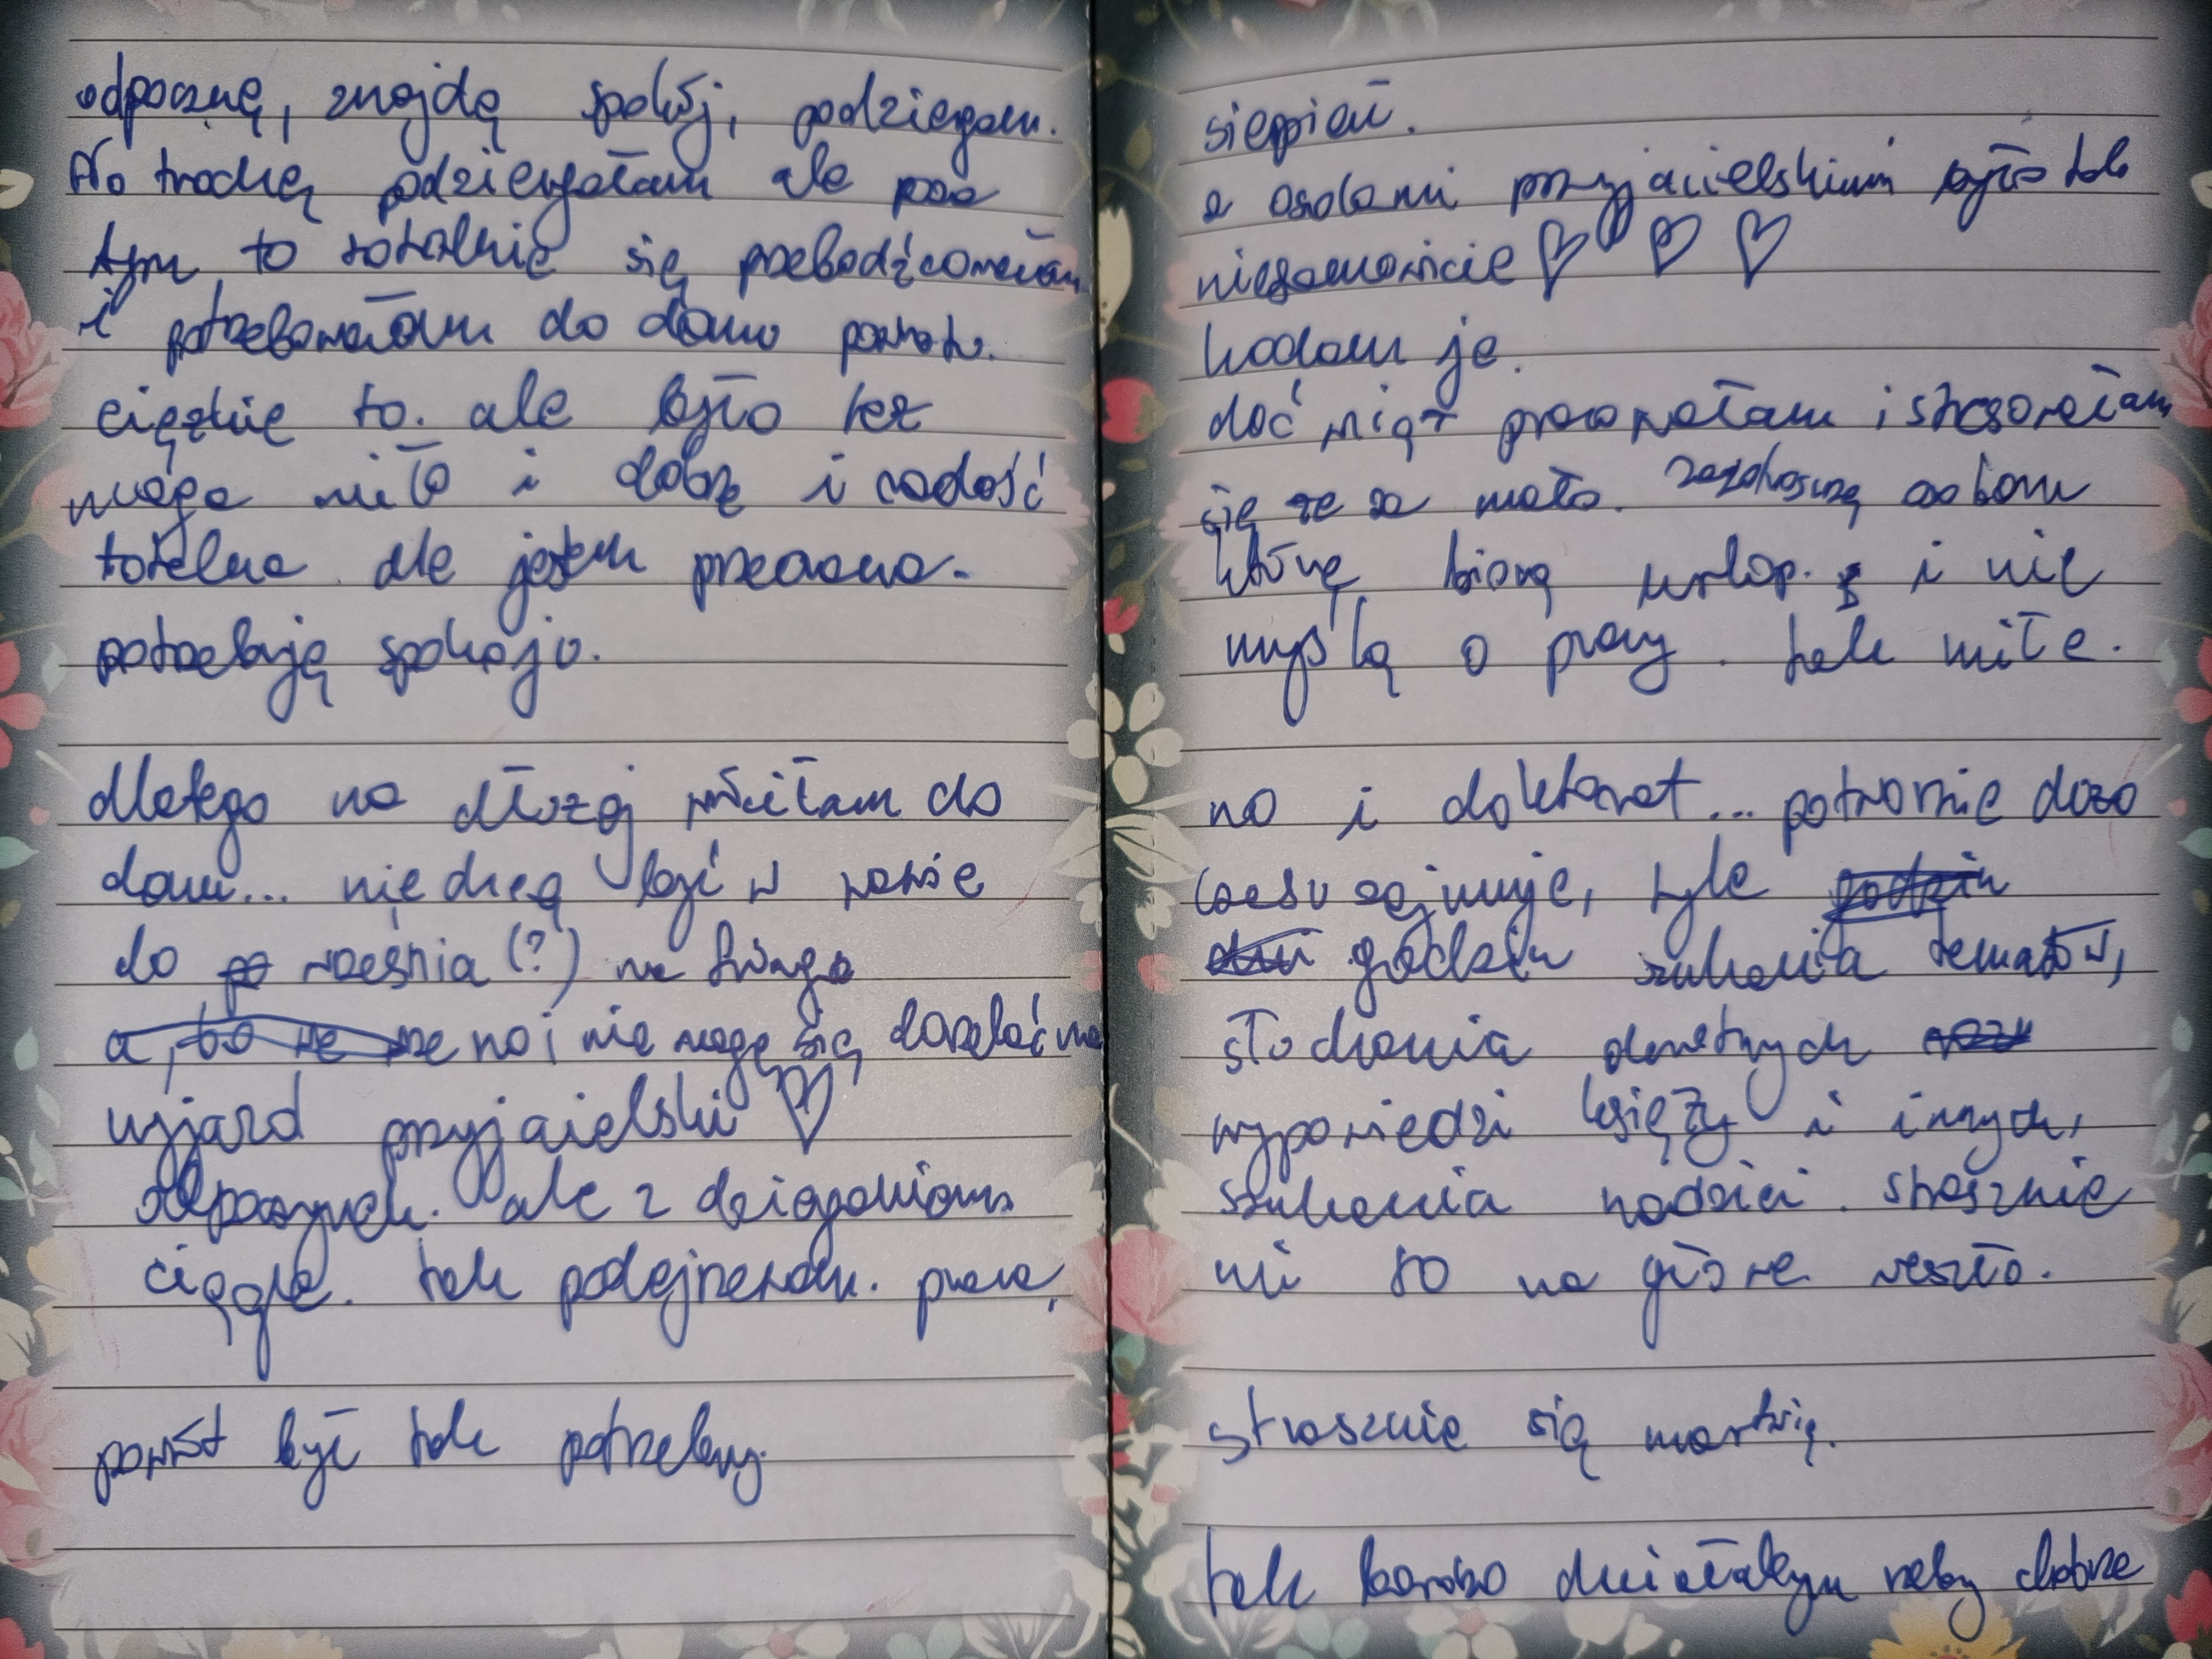 odpocznę, znajdę spokój, podziergam.
No trochę podziergałam ale poza
tym to totalnie się przebodźcowałam
i potrzebowałam do domu powrotu.
ciężkie to. ale było też
mega miło i dobrze i radość
totalna ale jestem
potrzebuję spokoju.
dlatego na dłużej wróciłam do
domu... nie chcę być w wawie
do września (?) na
no i nie mogę się doczekać na
wyjazd przyjacielski ♡
odpoczynek. ale z dzierganiem
ciągle. tak podejrzewam. praca,
powrót był tak potrzebny.
sierpień.
z osobami przyjacielskimi było tak
niesamowicie ♡ ♡ ♡
kocham je.
dać wiąż pracowałam i stresowałam
się że za mało. zazdroszczę osobom
które biorą urlop. i nie
myślą o pracy. tak miłe.
no i doktorat... potwornie dużo
czasu zajmuje, tyle godzin
dni godzin szukania tematów,
słuchania okropnych
wypowiedzi księży i innych,
szukania nadziei. strasznie
mi to na głowę weszło.
strasznie się martwię.
tak bardzo chciałabym żeby dobrze